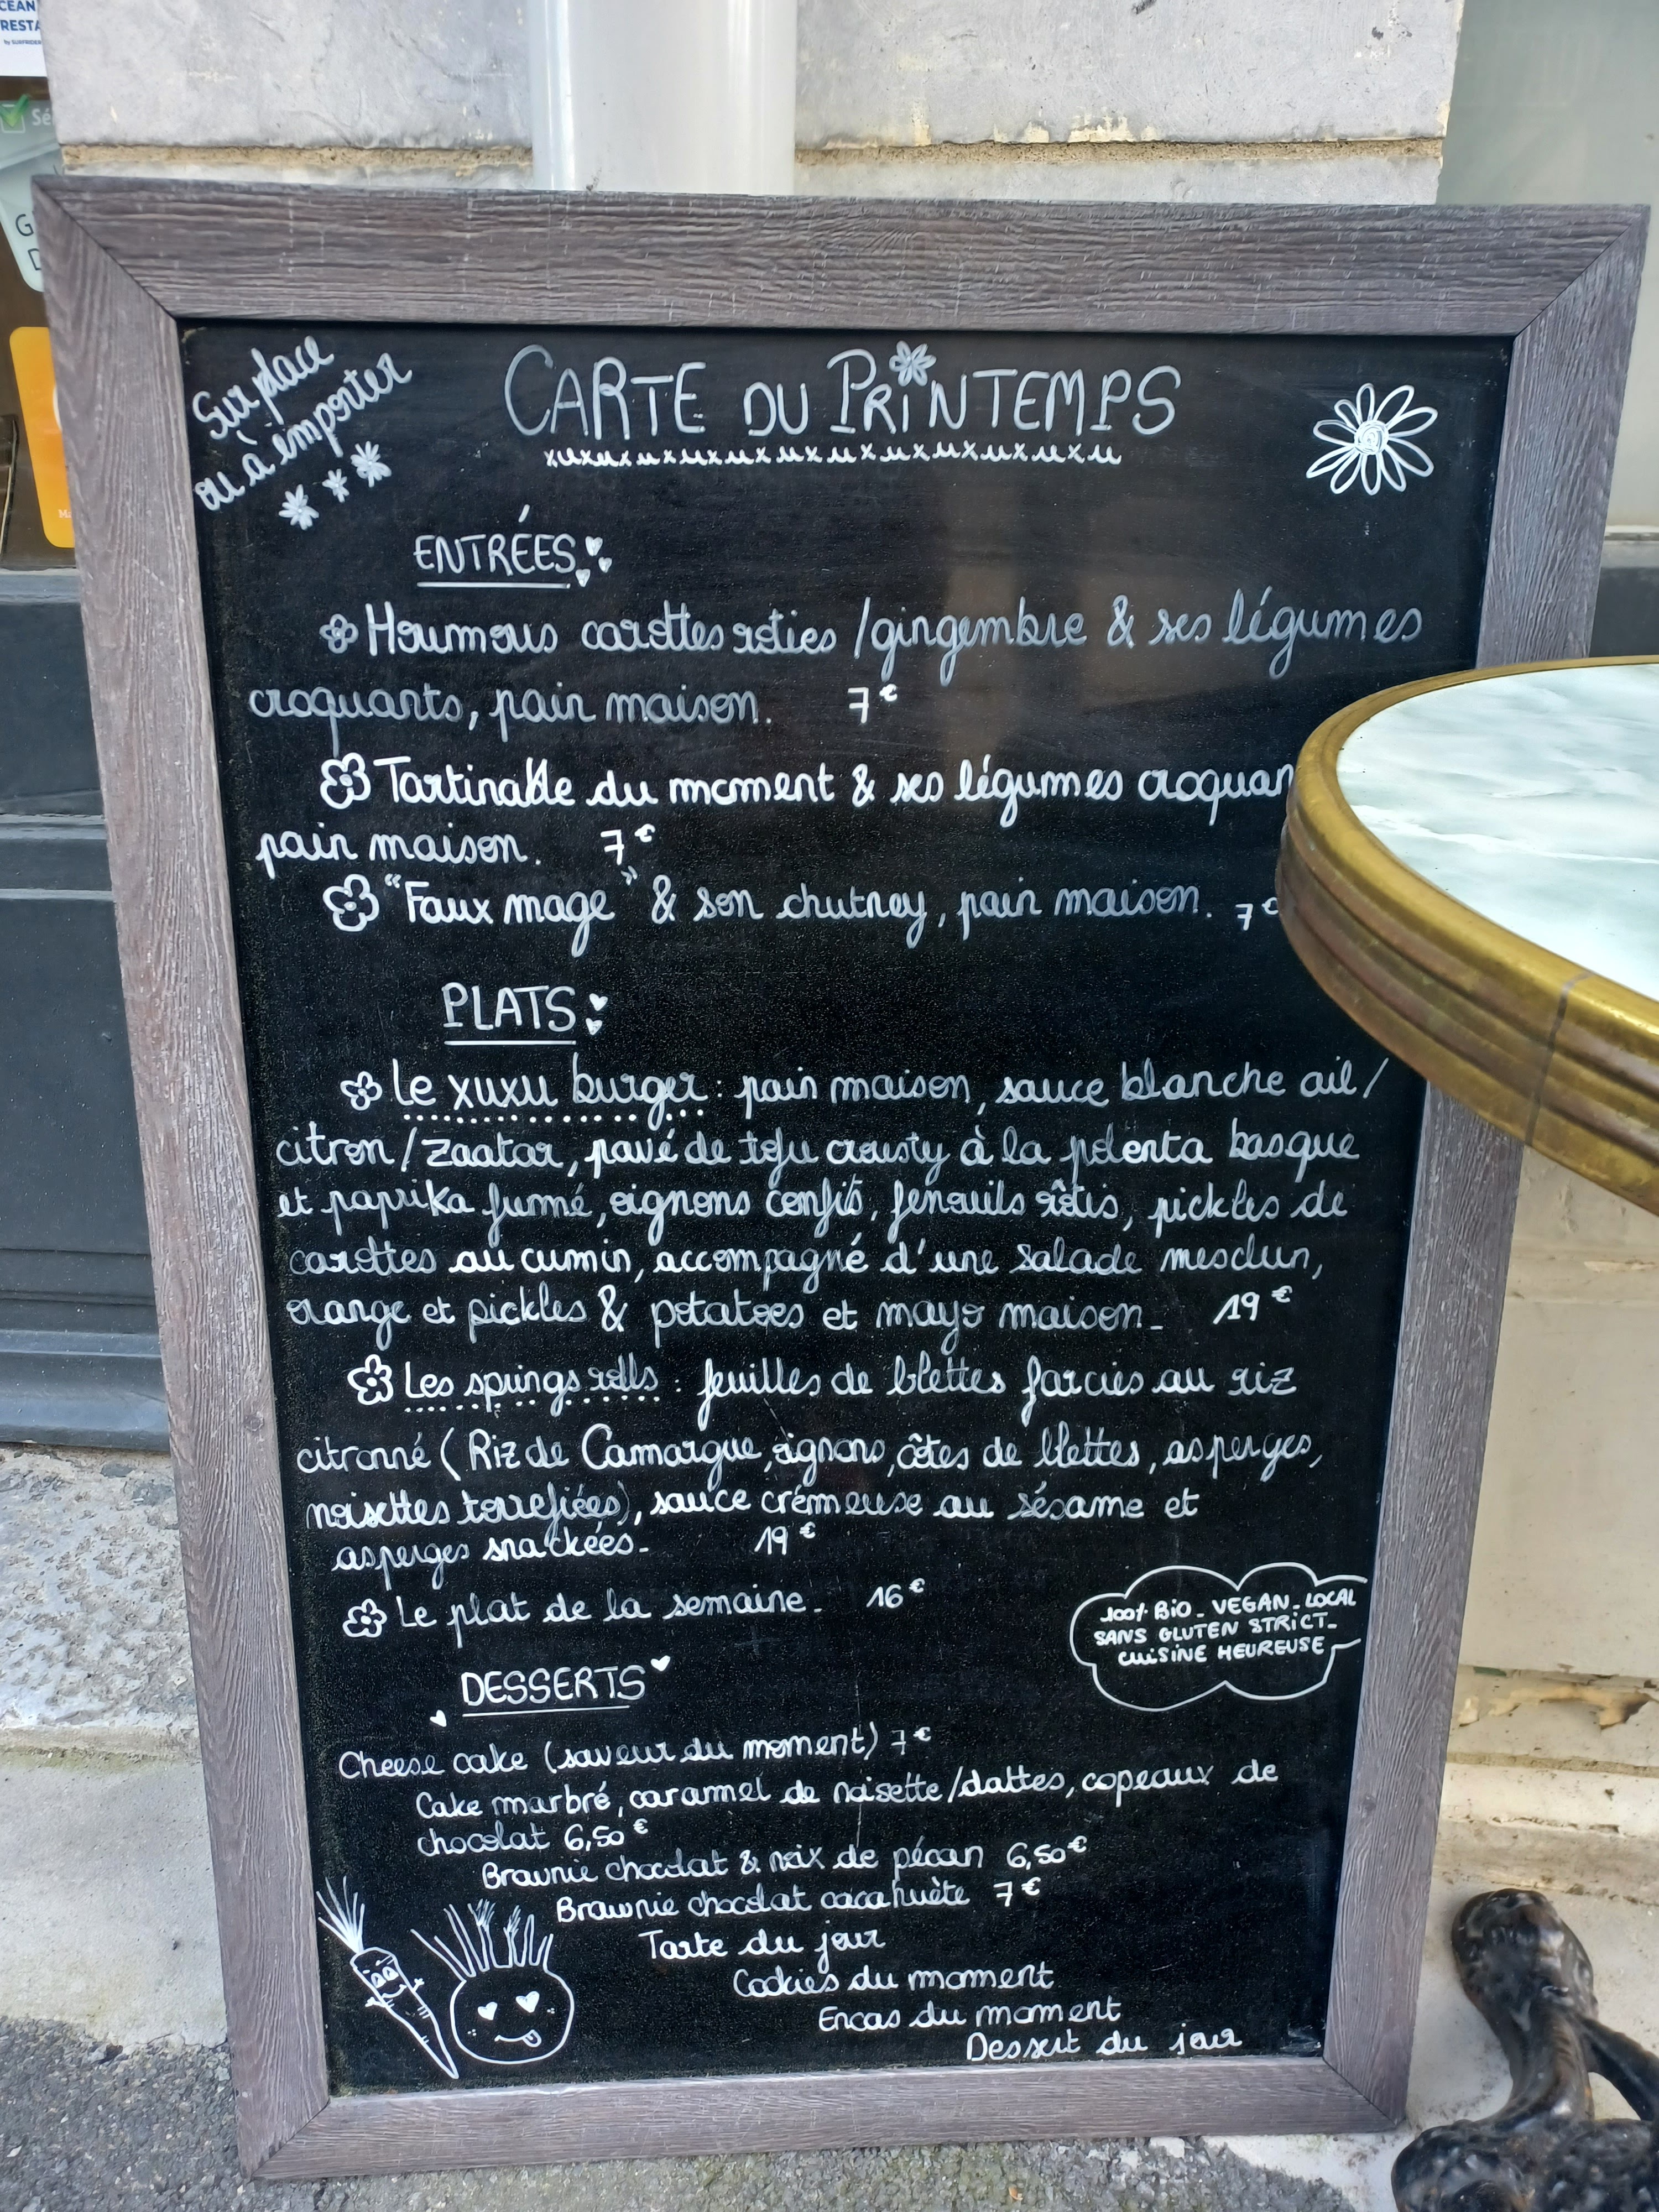 CEAN
RESTA
by SURFRIDER
Sé
G
D
Ma
Sur place
ou à emporter
CARTE DU PRINTEMPS
xuxuxuxuxuxuxuxuxuxuxuxuxu
ENTRÉES:
Houmous carottes roties / gingembre & ses légumes
croquants, pain maison. 7€
Tartinable du moment & ses légumes croquan
pain maison. 7€
"Faux mage" & son chutney, pain maison. 7€
PLATS:
Le xuxu burger : pain maison, sauce blanche ail/
citron/zaatar, pavé de tofu crousty à la polenta basque
et paprika fumé, oignons confits, fenouils rôtis, pickles de
carottes au cumin, accompagné d'une salade mesclun,
orange et pickles & potatoes et mayo maison_ 19€
Les springs rolls : feuilles de blettes farcies au riz
citronné (Riz de Camargue, oignons, côtes de blettes, asperges,
noisettes torrefiées), sauce crémeuse au sésame et
asperges snackées_ 19€
Le plat de la semaine_ 16€
100% BiO_VEGAN_LOCAL
SANS GLUTEN STRiCT_
CUiSiNE HEUREUSE
DESSERTS
Cheese cake (saveur du moment) 7€
Cake marbré, caramel de noisette/dattes, copeaux de
chocolat 6,50€
Brownie chocolat & noix de pécan 6,50€
Brownie chocolat cacahuète 7€
Tarte du jour
Cookies du moment
Encas du moment
Dessert du jour